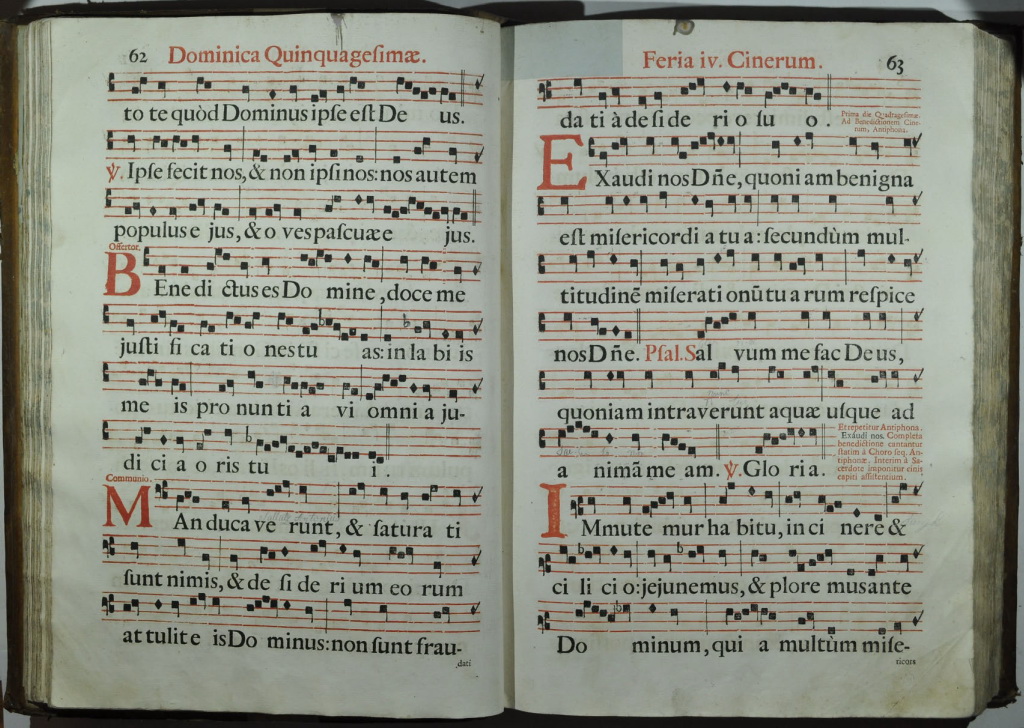 62 Dominica Quinquagesimæ.
to te quòd Dominus ipse est De us.
℣. Ipse fecit nos, & non ipsi nos: nos autem
populus e jus, & o ves pascuæ e jus.
Offertor.
BEne di ctus es Do mine, doce me
justi fi ca ti o nes tu as: in la bi is
me is pro nun ti a vi omni a ju-
di ci a o ris tu i.
Communio.
MAnduca ve runt, & satura ti
sunt nimis, & de si de ri um eo rum
at tulit e is Do minus: non sunt frau-
dati
Feria iv. Cinerum. 63
da ti à de si de ri o su o.
Prima die Quadragesimæ.
Ad Benedictionem Cine-
rum, Antiphona.
EXaudi nos Dñe, quoni am benigna
est misericordi a tu a: secundùm mul-
titudinẽ miserati onũ tu a rum respice
nos Dñe. Psal. Sal vum me fac De us,
quoniam intraverunt aquæ usque ad
a nimã me am. ℣. Glo ria.
Et repetitur Antiphona.
Exáudi nos. Completa
benedictione cantantur
statim à Choro seq. An-
tiphonæ. Interim à Sa-
cerdote imponitur cinis
capiti assistentium.
IMmute mur ha bitu, in ci nere &
ci li ci o: jejunemus, & plore mus ante
Do minum, qui a multùm mise-
ricors